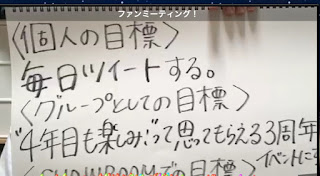 ファンミーティング!
<個人の目標>
毎日ツイートする。
<グループとしての目標>
"4年目も楽しみ"って思ってもらえる3周年
イベントにす
<SHOWROOMでの目標>